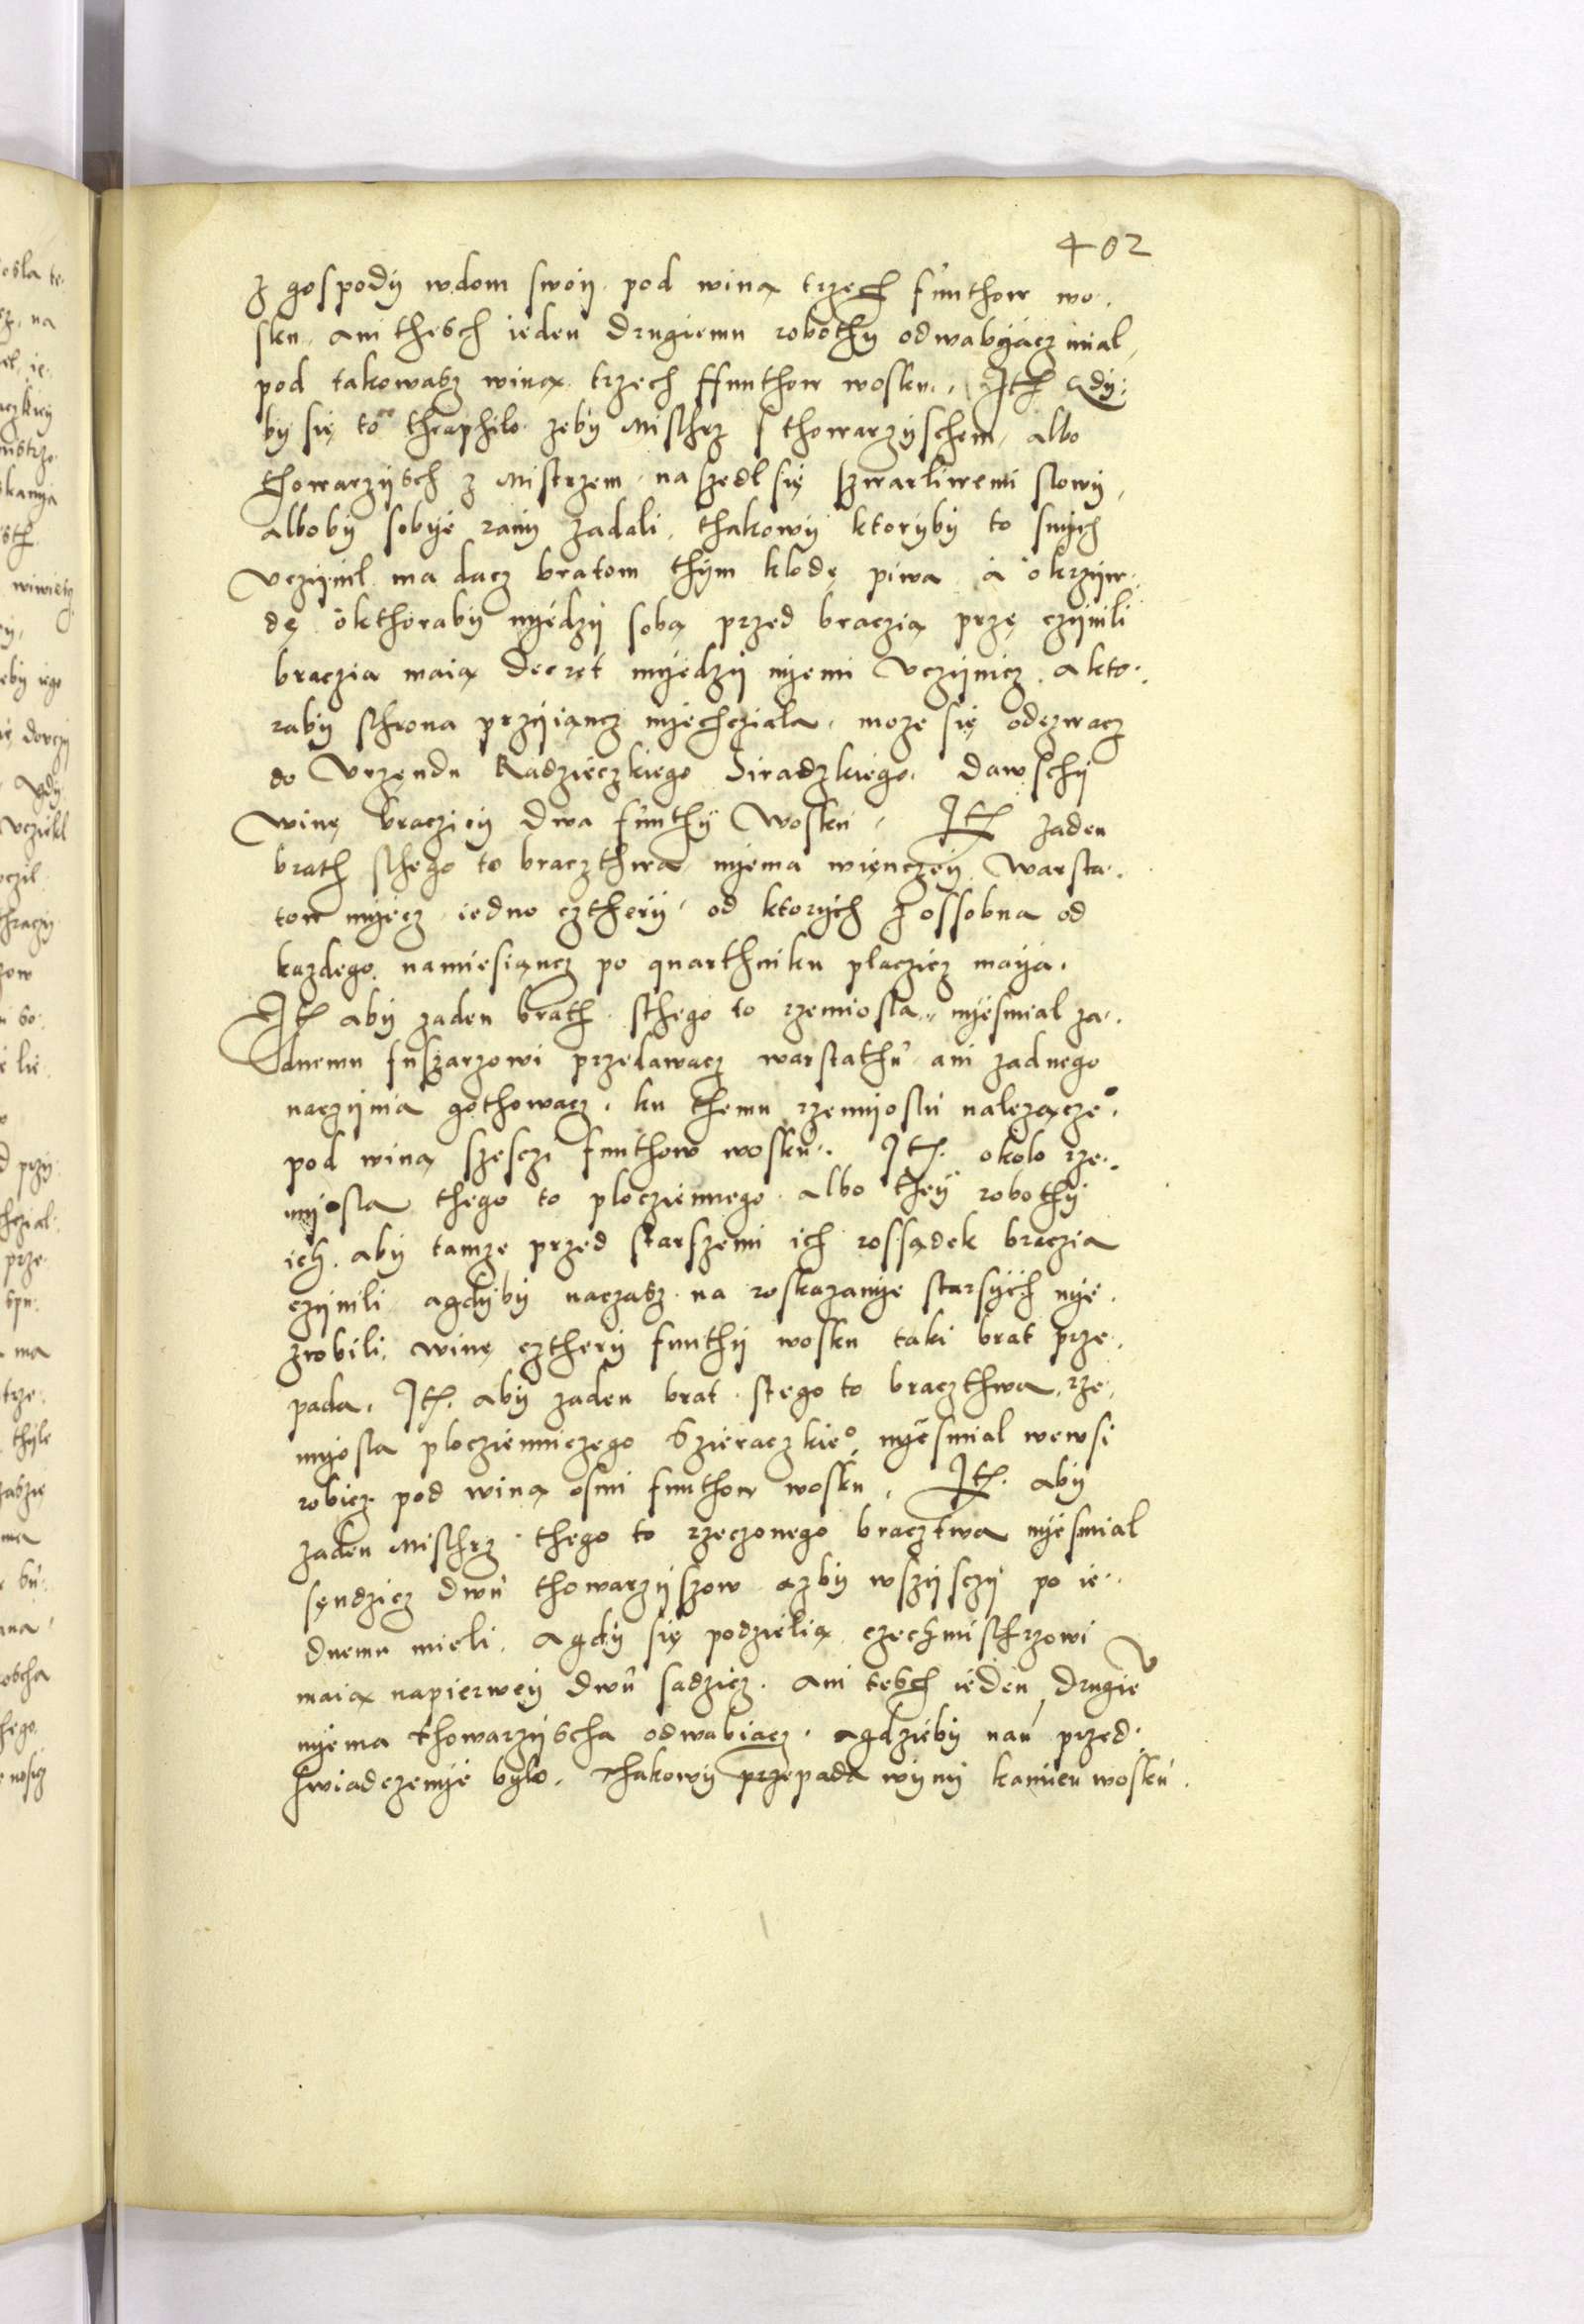 402
z gospody w dom swoÿ pod winą trzech funthow wo
sku. ani thesch ieden drugiemu robothy odwabÿacz mial
pod takowasz winą trzech ffunthow wosku. Ith Gdÿ
bÿ się to theaphilo zebÿ Mischrz s thowarzÿschem, albo
thowarzÿsch z Mistrzem naszedl się szwarliwemi slowÿ,
albobÿ sobÿe ranÿ zadali, thakowÿ ktorÿbÿ to snÿch
Vczÿnil ma dacz bratom thÿm klodę piwa a okrzÿw
dę okthorabÿ mÿedzÿ sobą przed braczią przę czÿnili
braczia maią decret mÿedzÿ nÿemi Vczÿnicz. akto
rabÿ schrona przÿiącz nÿechcziala, moze się odezwacz
do Vrzendu Radzieczkiego Siradzkiego. dawschÿ
winę braczieÿ dwa funthÿ Wosku. Ith zaden
brath sthego to braczthwa nÿema więnczeÿ Warsta
tow mÿecz iedno cztherÿ, od ktorÿch z ossobna od
kazdego namiesiąncz po quarthniku placzicz maÿa.
Ith abÿ zaden brath sthego to rzemiosla nÿesmial za
dnemu fuszarzowi przedawacz warstathu ani zadnego
naczÿnia gothowacz, ku themu rzemÿoslu nalezącze°.
pod winą szesczi funthow wosku. Ith. okolo rze
mÿosla thego to ploczienne̱go albo theÿ robothÿ
ich. abÿ tamze przed starszemi ich rossądek braczia
czÿnili agdÿbÿ naczasz na roskazanÿe starsÿch nÿe
zrobili, winę cztherÿ funthÿ wosku taki brat prze
pada. Ith. abÿ zaden brat stego to braczthwa rze
mÿosla ploczienniczego Szieraczkie° nÿesmial wewsi
robicz pod winą osmi funthow wosku. Ith. abÿ
zaden Mischrz thego to rzeczonego bracztwa nÿesmial
sęndzicz dwu thowarzÿszow azbÿ wszÿsczÿ po ie
dnemu mieli. agdÿ się podzielią czechmischrzowi
maią napierweÿ dwu sadzicz. ani tesch ieden drugie
nÿema thowarzÿscha odwabiacz. agdziebÿ nań przed
swiadczenÿe bÿlo. thakowÿ przepada winÿ kamien wosku.